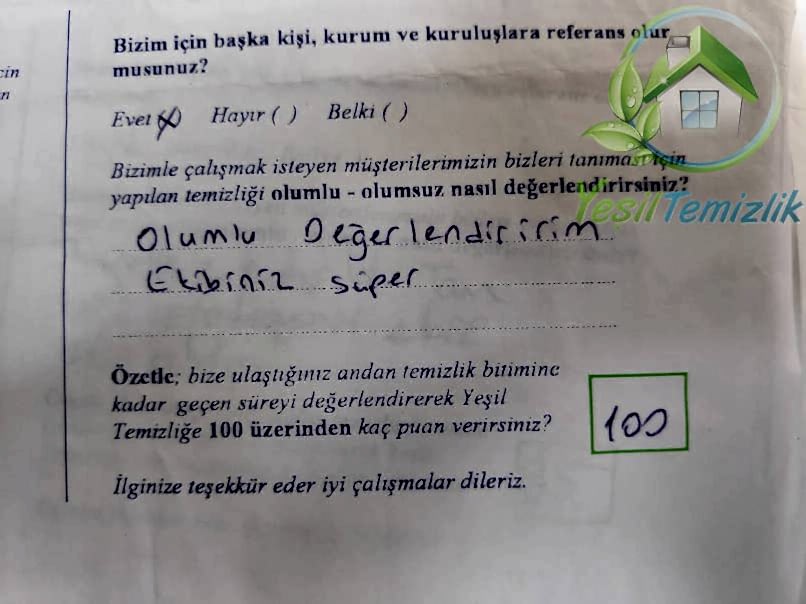 Bizim için başka kişi, kurum ve kuruluşlara referans olur
musunuz?
Evet (X) Hayır ( ) Belki ( )
Bizimle çalışmak isteyen müşterilerimizin bizleri tanıması için
yapılan temizliği olumlu - olumsuz nasıl değerlendirirsiniz?
Yeşil Temizlik
Olumlu Değerlendiririm
Ekibiniz süper
Özetle; bize ulaştığınız andan temizlik bitimine
kadar geçen süreyi değerlendirerek Yeşil
Temizliğe 100 üzerinden kaç puan verirsiniz?
100
İlginize teşekkür eder iyi çalışmalar dileriz.